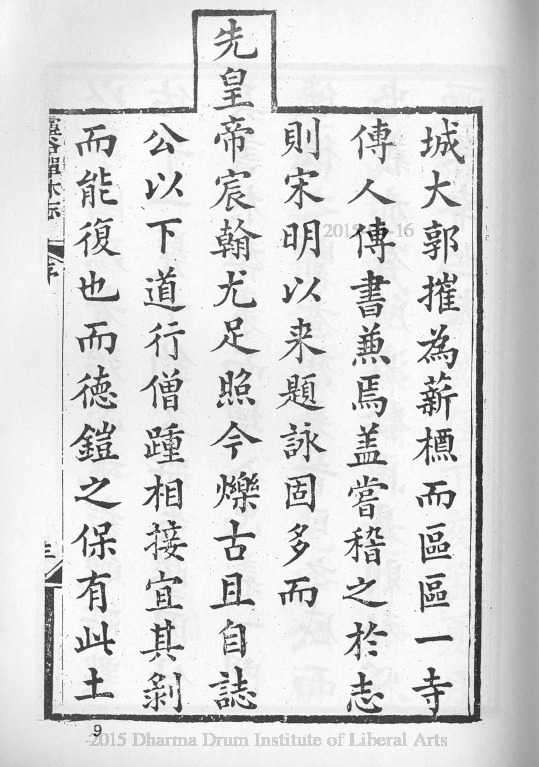 城大郭摧為薪槱而區區一寺
傳人傳書兼焉盖嘗稽之於志
則宋明以来題詠固多而
先皇帝宸翰尤足照今爍古且自誌
公以下道行僧踵相接宜其剝
而能復也而德鎧之保有此土
靈谷禪林志
序
三
9
-2015 Dharma Drum Institute of Liberal Arts